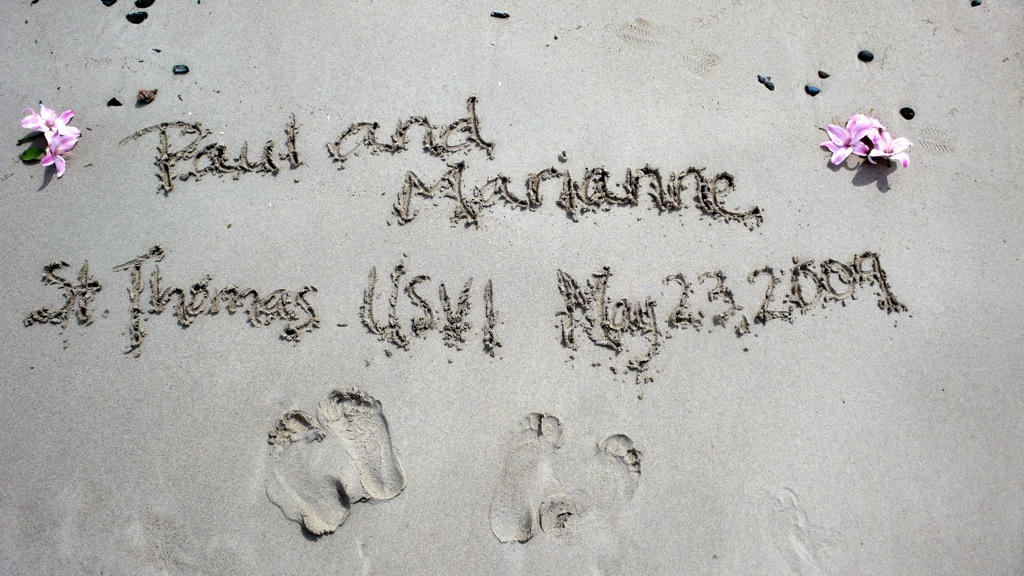 Paul and
Marianne
St. Thomas USVI May 23, 2009